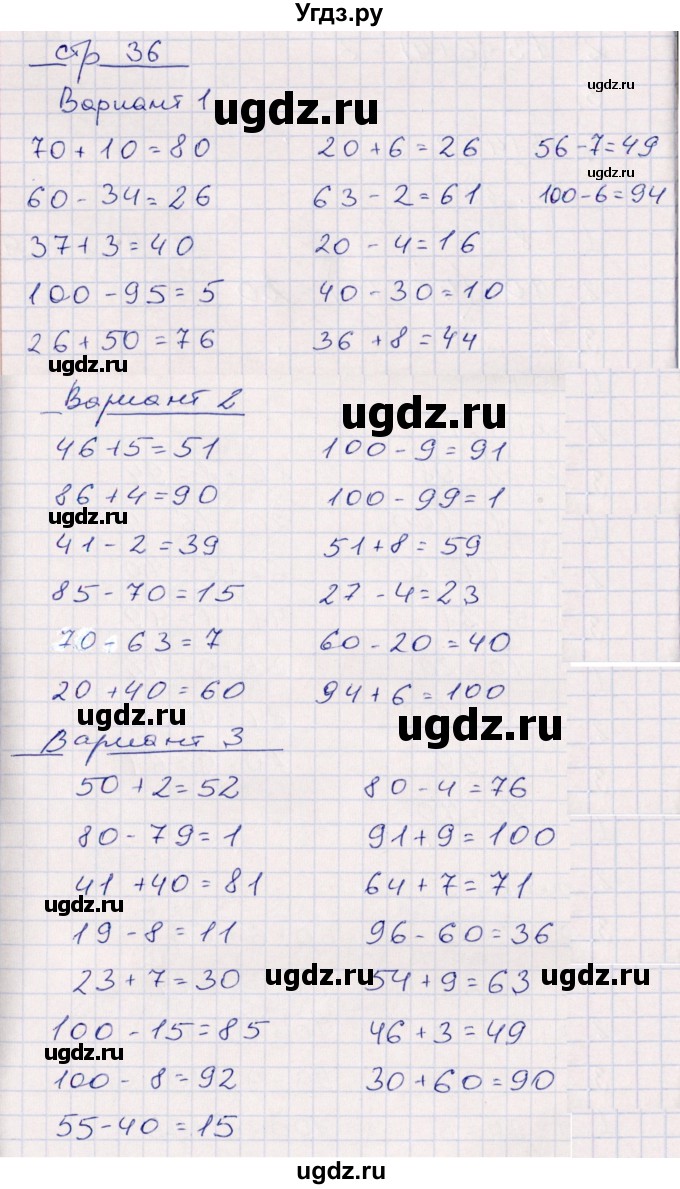 Угдз.ру
стр 36
ugdz.ru
Вариант 1
ugdz.ru
70 + 10 = 80 20 + 6 = 26 56 - 7 = 49
60 - 34 = 26 63 - 2 = 61 100 - 6 = 94
37 + 3 = 40 20 - 4 = 16
100 - 95 = 5 40 - 30 = 10
26 + 50 = 76 36 + 8 = 44
ugdz.ru
Вариант 2
ugdz.ru
46 + 5 = 51 100 - 9 = 91
86 + 4 = 90 100 - 99 = 1
ugdz.ru
41 - 2 = 39 51 + 8 = 59
85 - 70 = 15 27 - 4 = 23
70 - 63 = 7 60 - 20 = 40
20 + 40 = 60 94 + 6 = 100
ugdz.ru ugdz.ru
Вариант 3
50 + 2 = 52 80 - 4 = 76
80 - 79 = 1 91 + 9 = 100
41 + 40 = 81 64 + 7 = 71
ugdz.ru
19 - 8 = 11 96 - 60 = 36
23 + 7 = 30 54 + 9 = 63
ugdz.ru ugdz.ru
100 - 15 = 85 46 + 3 = 49
ugdz.ru
100 - 8 = 92 30 + 60 = 90
55 - 40 = 15
ugdz.ru